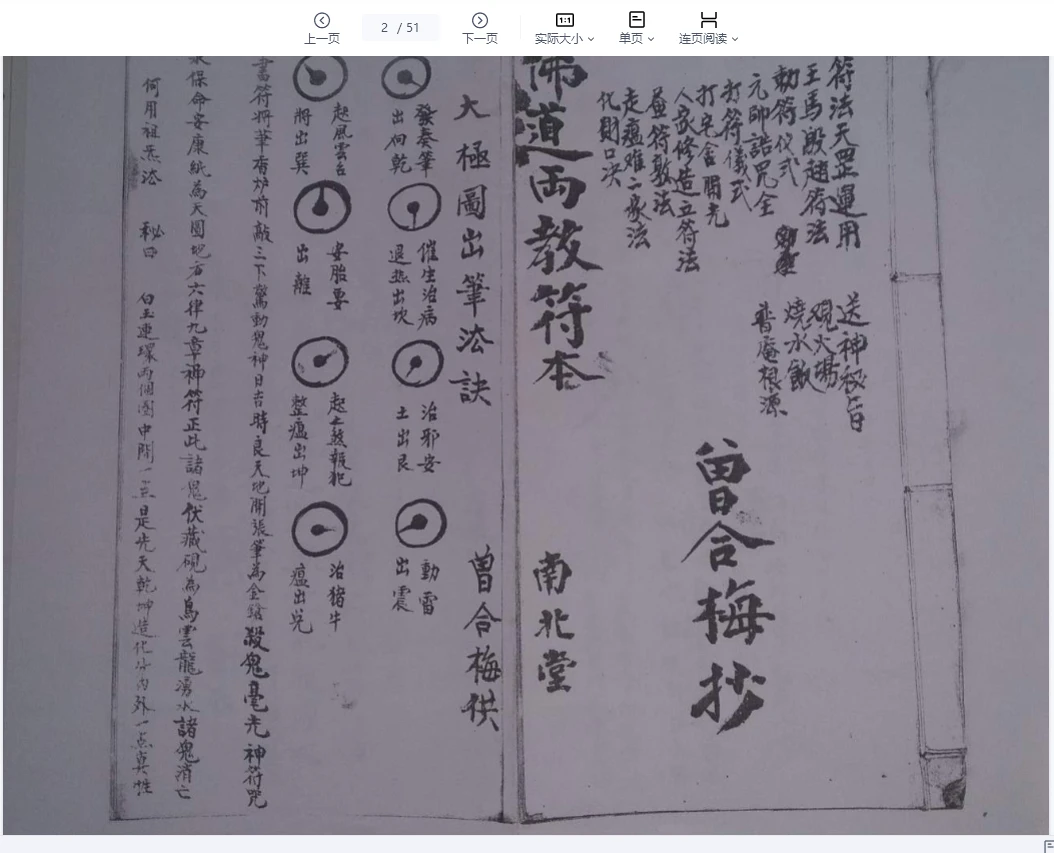 上一页
2 / 51
下一页
实际大小
单页
连页阅读
符法天罡運用
王馬殷趙符法
動符儀式
元帥誥咒全
打符儀式
打宅舍開光
人家修造立符法
並符敕法
走瘟难二家法
化財口決
送神秘旨
观火場
燒水飯
普庵根源
曾合梅抄
佛道両教符本
南北堂
大極圖出筆法訣
曾合梅供
發奏筆
出向乾
催生治病
退煞出坎
治邪安
土出艮
動雷
出震
起風雲台
將出巽
安胎要
出離
起土煞報犯
整瘟出坤
治猪牛
瘟出兑
書符將筆香炉前敲三下驚動鬼神日吉時良天地開張筆為金鎗殺鬼毫光神符咒
保命安康紙為天圓地方六律九章神符正此諸鬼伏藏硯為烏雲龍湧水諸鬼消亡
何用祖炁法
秘曰
白玉連環両個圈中間一点是先天乾坤造化分内外一点真性